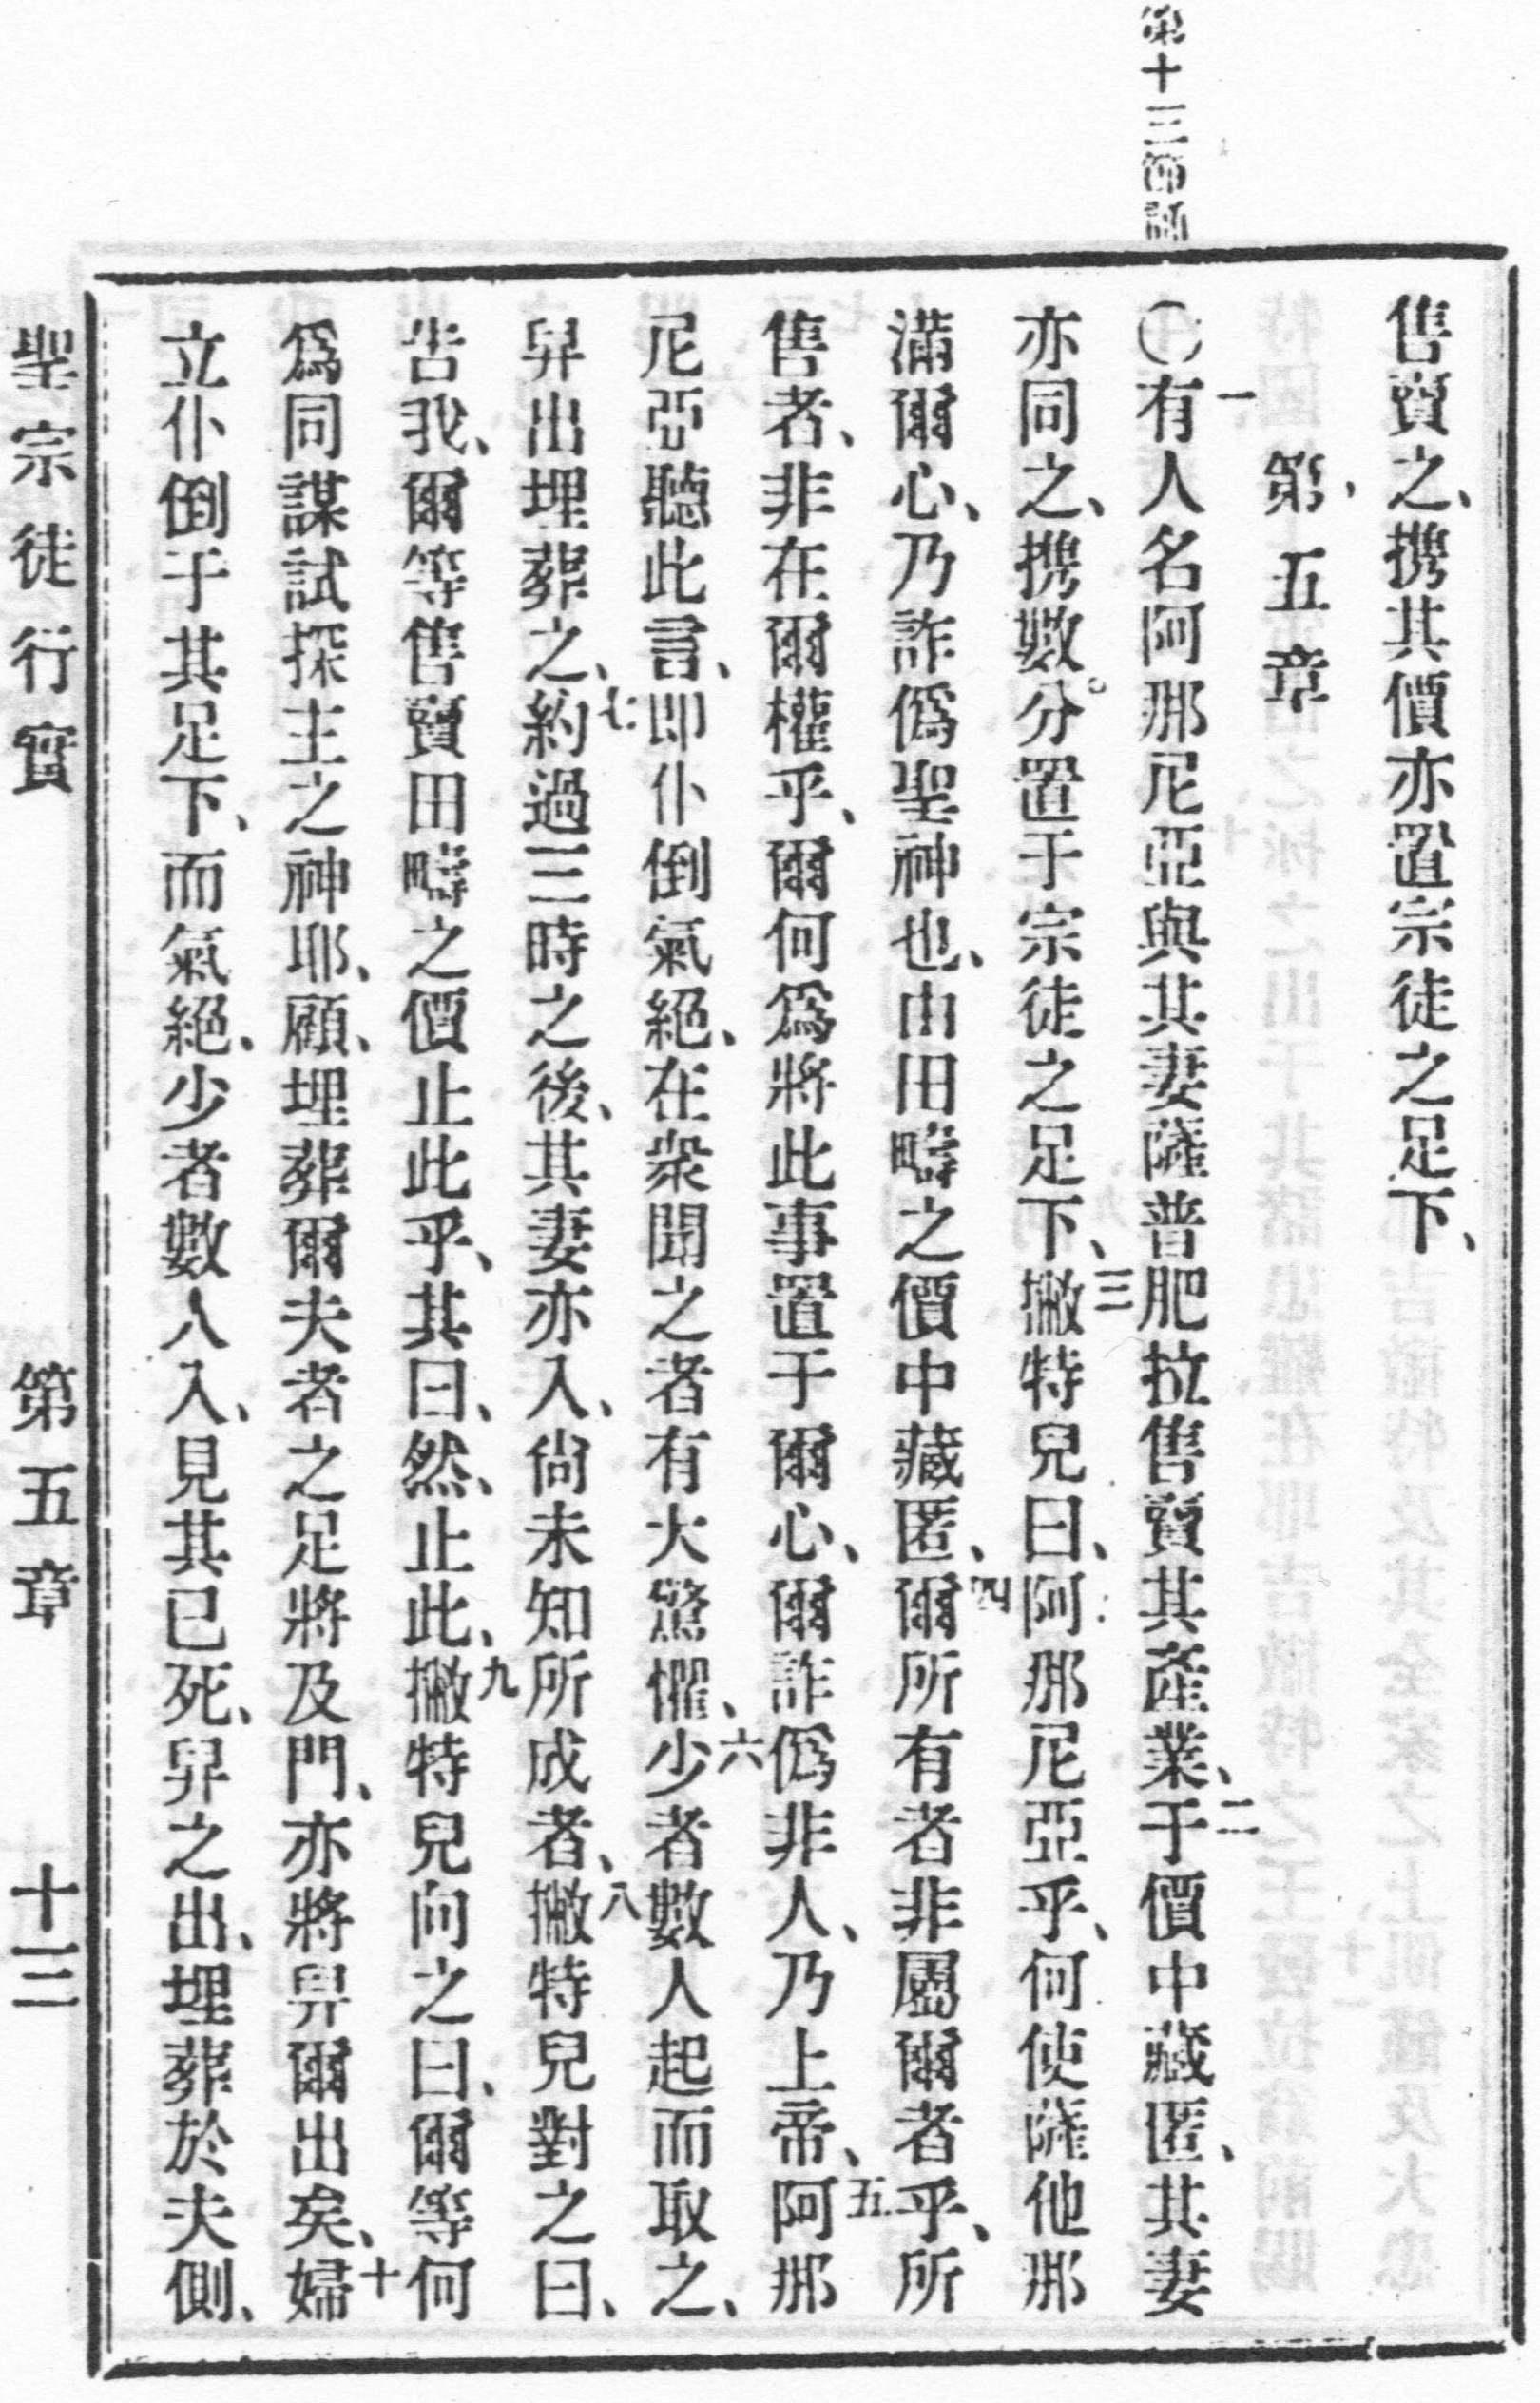 第十三節誦
售賣之、携其價亦置宗徒之足下、
第五章
㊀一有人名阿那尼亞與其妻薩普肥拉售賣其產業、二于價中藏匿、其妻
亦同之、携數分置于宗徒之足下、三撇特兒曰、阿那尼亞乎、何使薩他那
滿爾心、乃詐僞聖神也、由田疇之價中藏匿、四爾所有者非屬爾者乎、所
售者、非在爾權乎、爾何爲將此事置于爾心、爾詐僞非人、乃上帝、五阿那
尼亞聽此言、即仆倒氣絕、在衆聞之者有大驚懼、六少者數人起而取之、
舁出埋葬之、七約過三時之後、其妻亦入、尙未知所成者、八撇特兒對之曰、
告我、爾等售賣田疇之價止此乎、其曰、然、止此、九撇特兒向之曰、爾等何
爲同謀試探主之神耶、顧、埋葬爾夫者之足將及門、亦將舁爾出矣、十婦
立仆倒于其足下、而氣絕、少者數人入、見其已死、舁之出、埋葬於夫側、
聖宗徒行實 第五章 十三